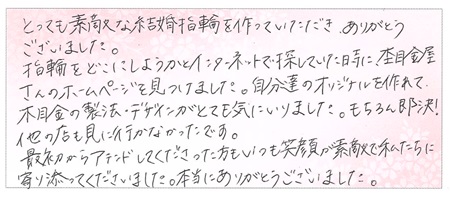 とっても素敵な結婚指輪を作っていただき ありがとう
ございました。
指輪をどこにしようかとインターネットで探していた時に、杢目金屋
さんのホームページを見つけました。自分達のオリジナルを作れて
木目金の製法・デザインがとても気にいりました。もちろん即決!
他の店も見に行かなかったです。
最初からアテンドしてくださった方もいつも笑顔が素敵で私たちに
寄り添ってくださいました。本当にありがとうございました。